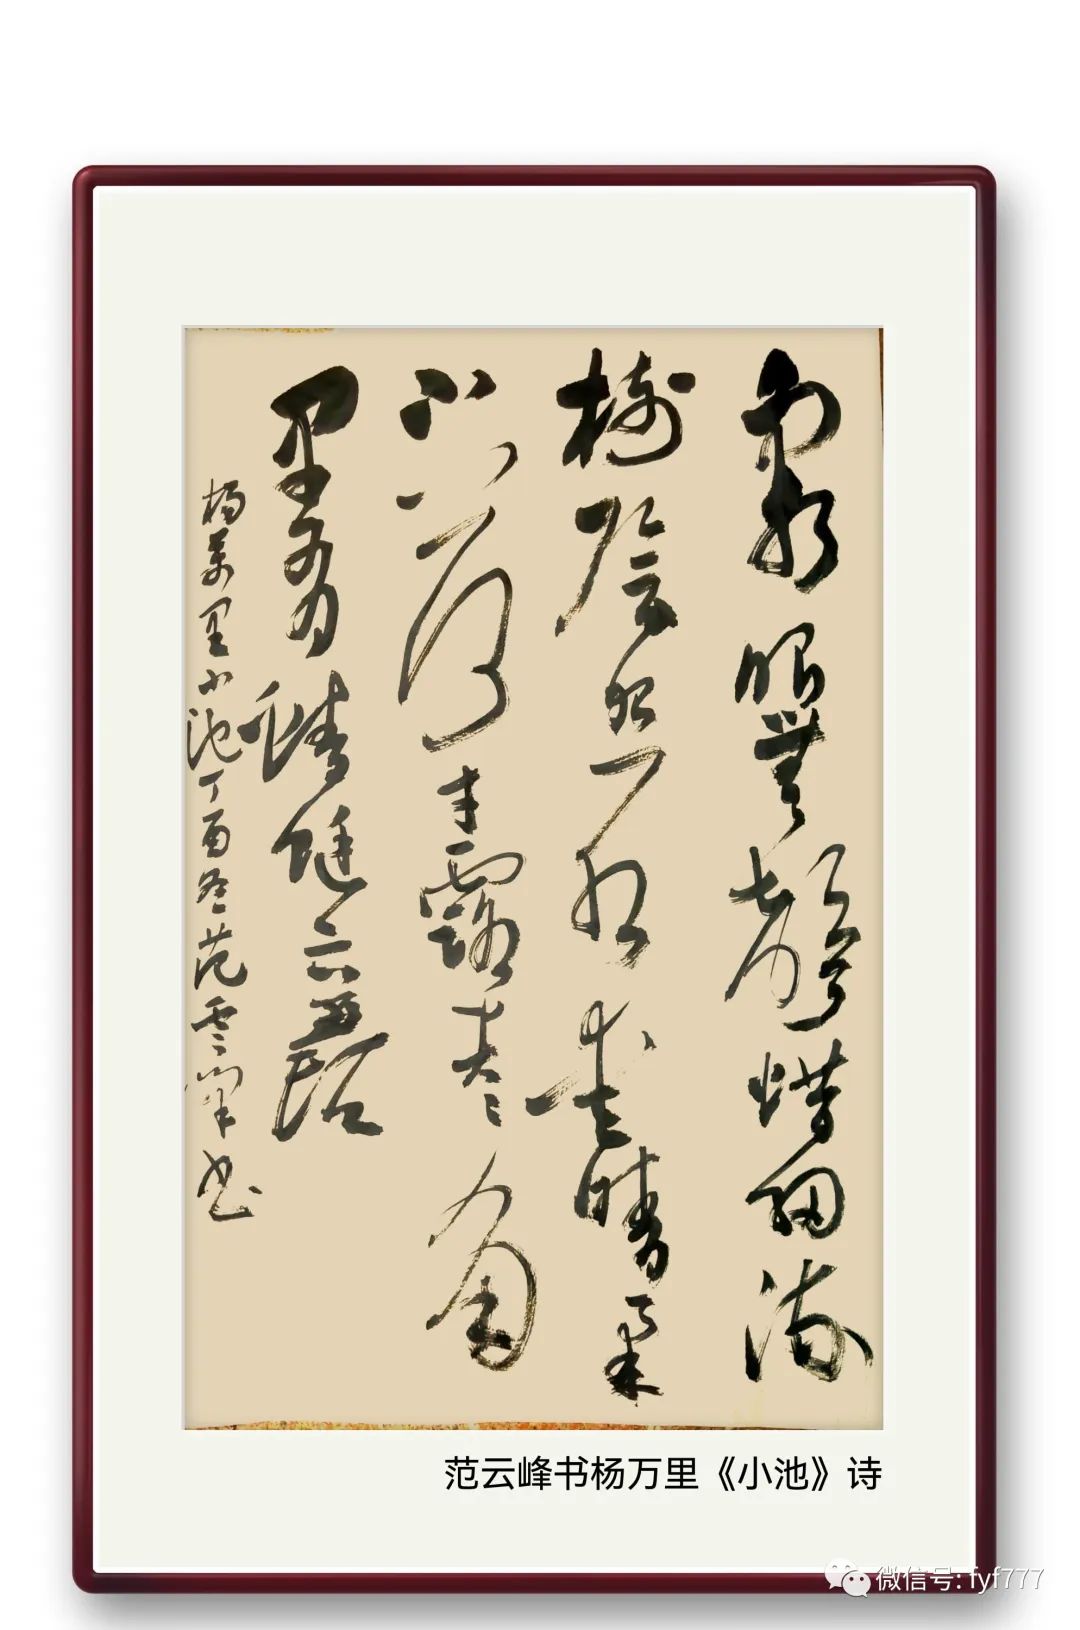 泉眼無聲惜細流
樹陰照水愛晴柔
小荷才露尖尖角
早有蜻蜓立上頭
楊萬里小池丁酉冬范雲峯书
范云峰书杨万里《小池》诗
微信号: fyf777